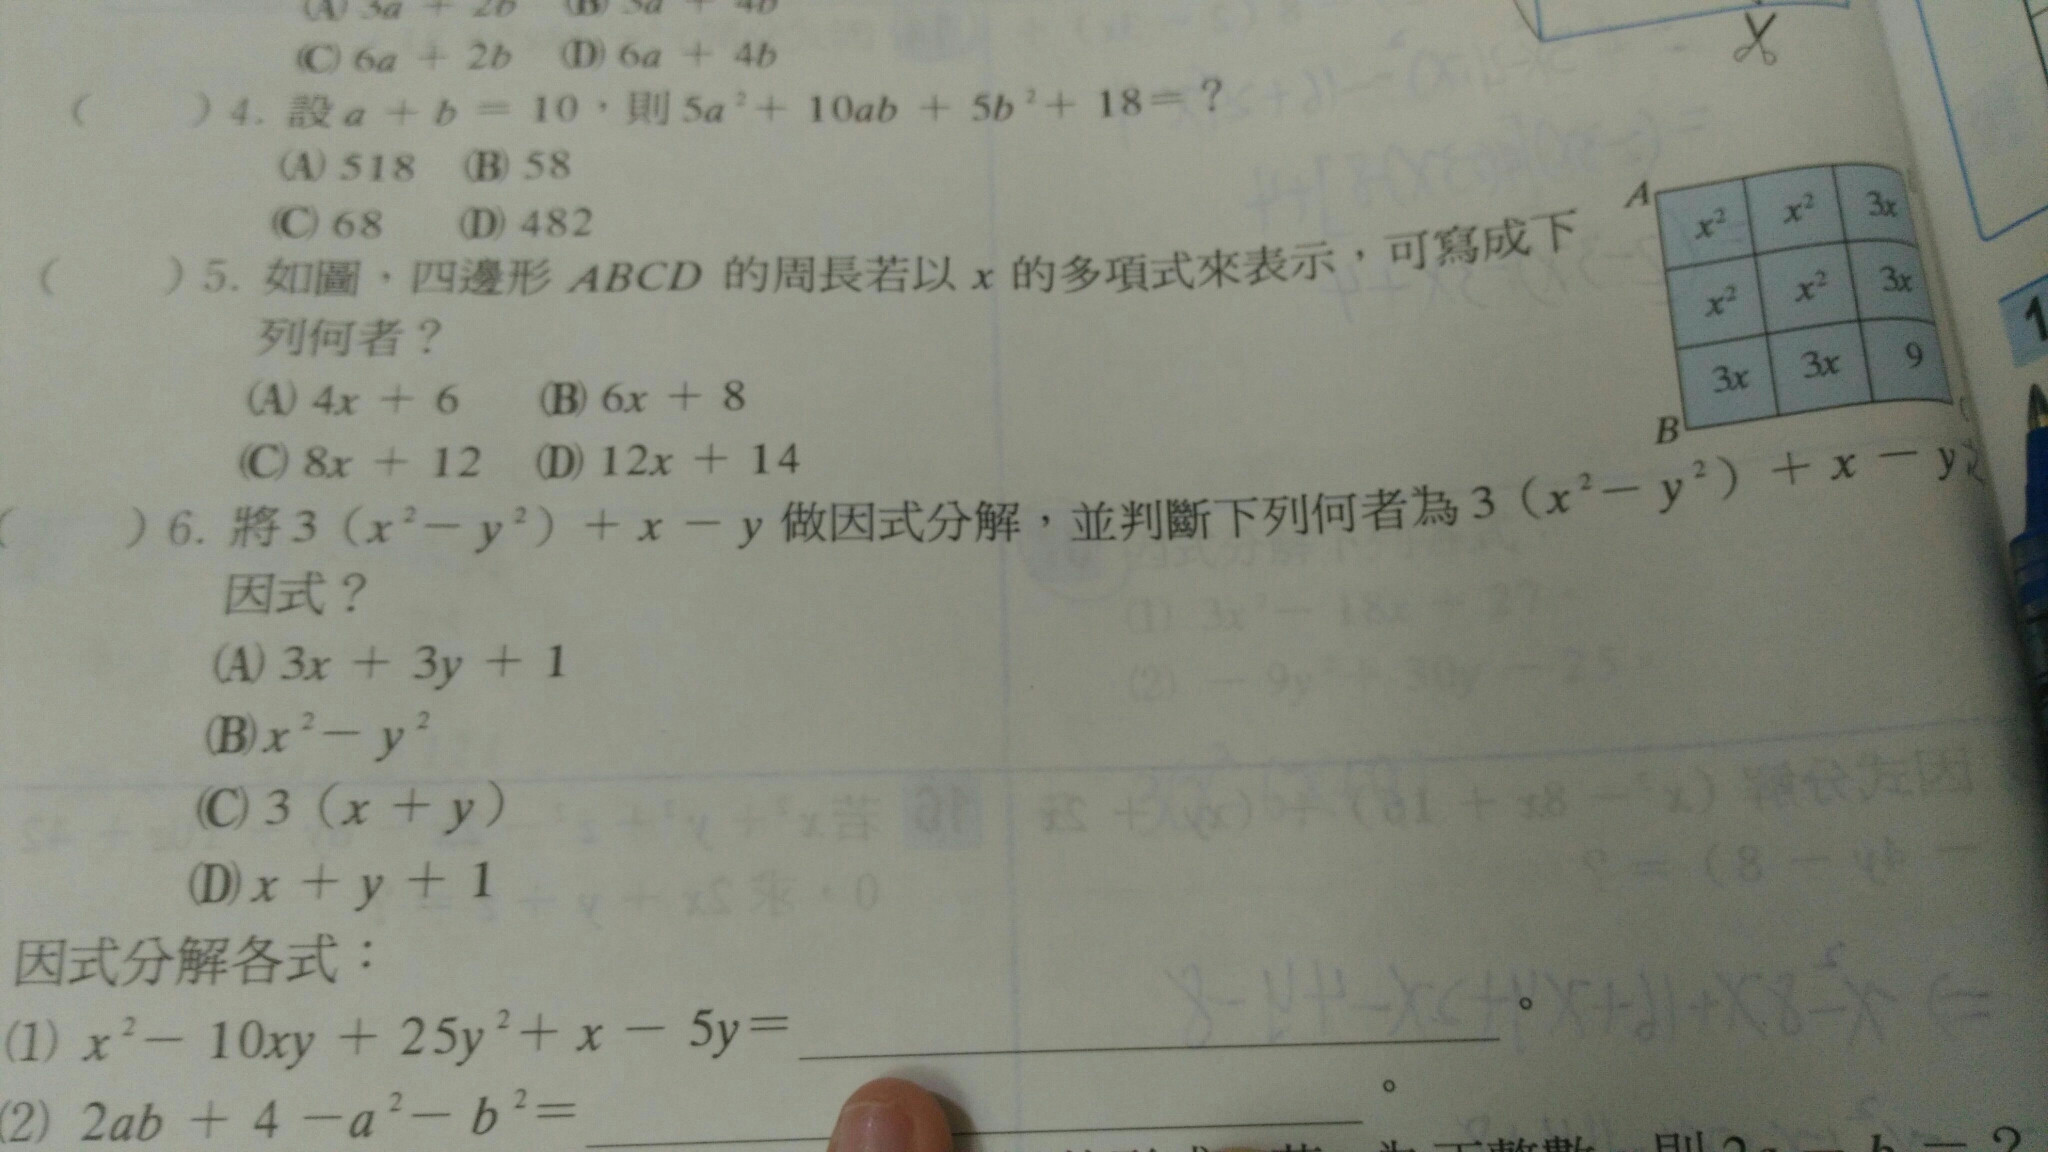 (A) 3a + 2b (B) 3a + 4b
(C) 6a + 2b (D) 6a + 4b
( ) 4. 設 a + b = 10，則 5a²+ 10ab + 5b²+ 18=？
(A) 518 (B) 58
(C) 68 (D) 482
( ) 5. 如圖，四邊形 ABCD 的周長若以 x 的多項式來表示，可寫成下
列何者？
(A) 4x + 6 (B) 6x + 8
(C) 8x + 12 (D) 12x + 14
A
x² x² 3x
x² x² 3x
3x 3x 9
B
( ) 6. 將 3（x²− y²）+ x − y 做因式分解，並判斷下列何者為 3（x²− y²）+ x − y
因式？
(A) 3x + 3y + 1
(B) x²− y²
(C) 3（x + y）
(D) x + y + 1
因式分解各式：
(1) x²− 10xy + 25y²+ x − 5y= 。
(2) 2ab + 4 −a²− b²= 。
1